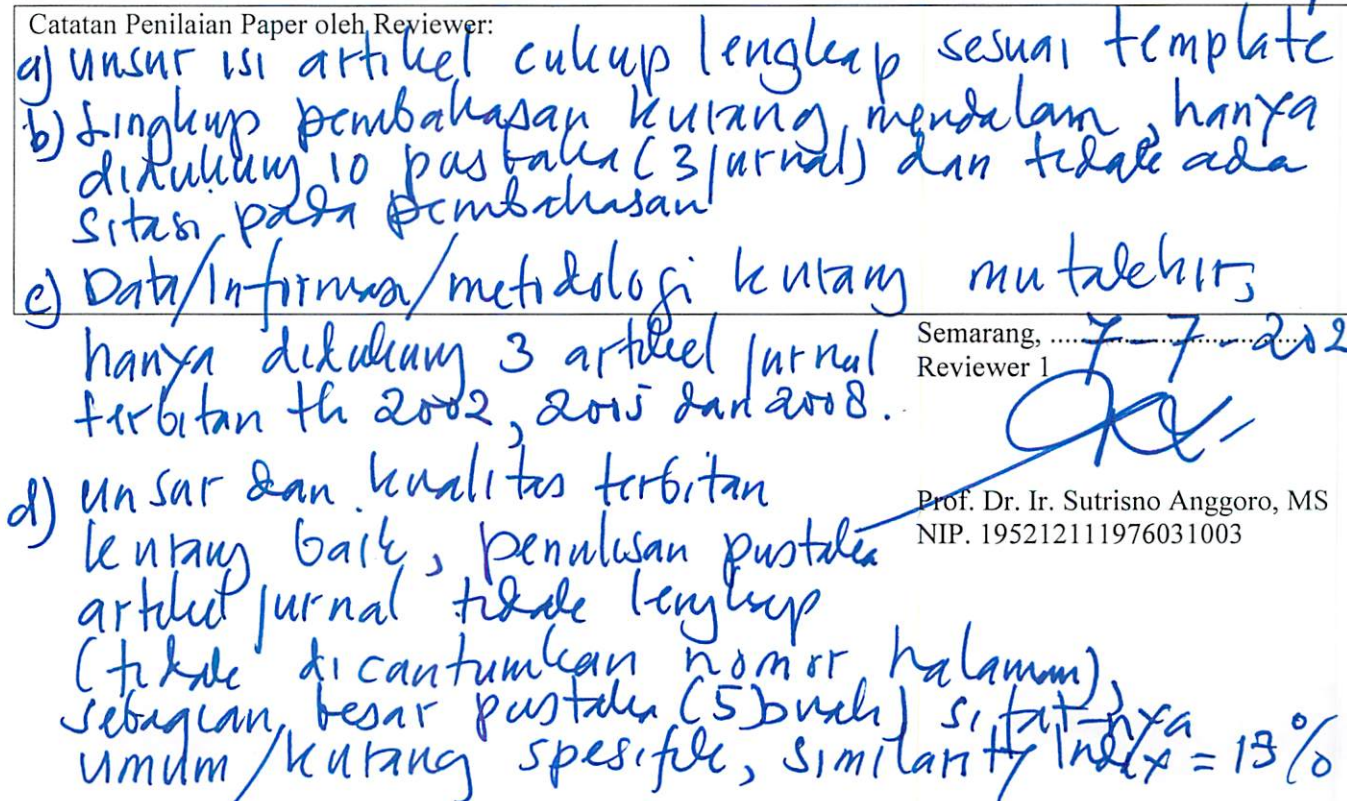 Catatan Penilaian Paper oleh Reviewer:
a) unsur isi artikel cukup lengkap sesuai template
b) Lingkup pembahasan kurang mendalam, hanya
didukung 10 pustaka (3 jurnal) dan tidak ada
sitasi pada pembahasan
c) Data/Informasi/metodologi kurang mutakhir,
hanya didukung 3 artikel jurnal
terbitan th 2002, 2005 dan 2008.
Semarang, 7-7-202
Reviewer 1
d) unsur dan kualitas terbitan
kurang baik, penulisan pustaka
artikel jurnal tidak lengkap
(tidak dicantumkan nomor halaman),
sebagian besar pustaka (5 buah) sifat-nya
umum/kurang spesifik, similarity Index = %
Prof. Dr. Ir. Sutrisno Anggoro, MS
NIP. 195212111976031003